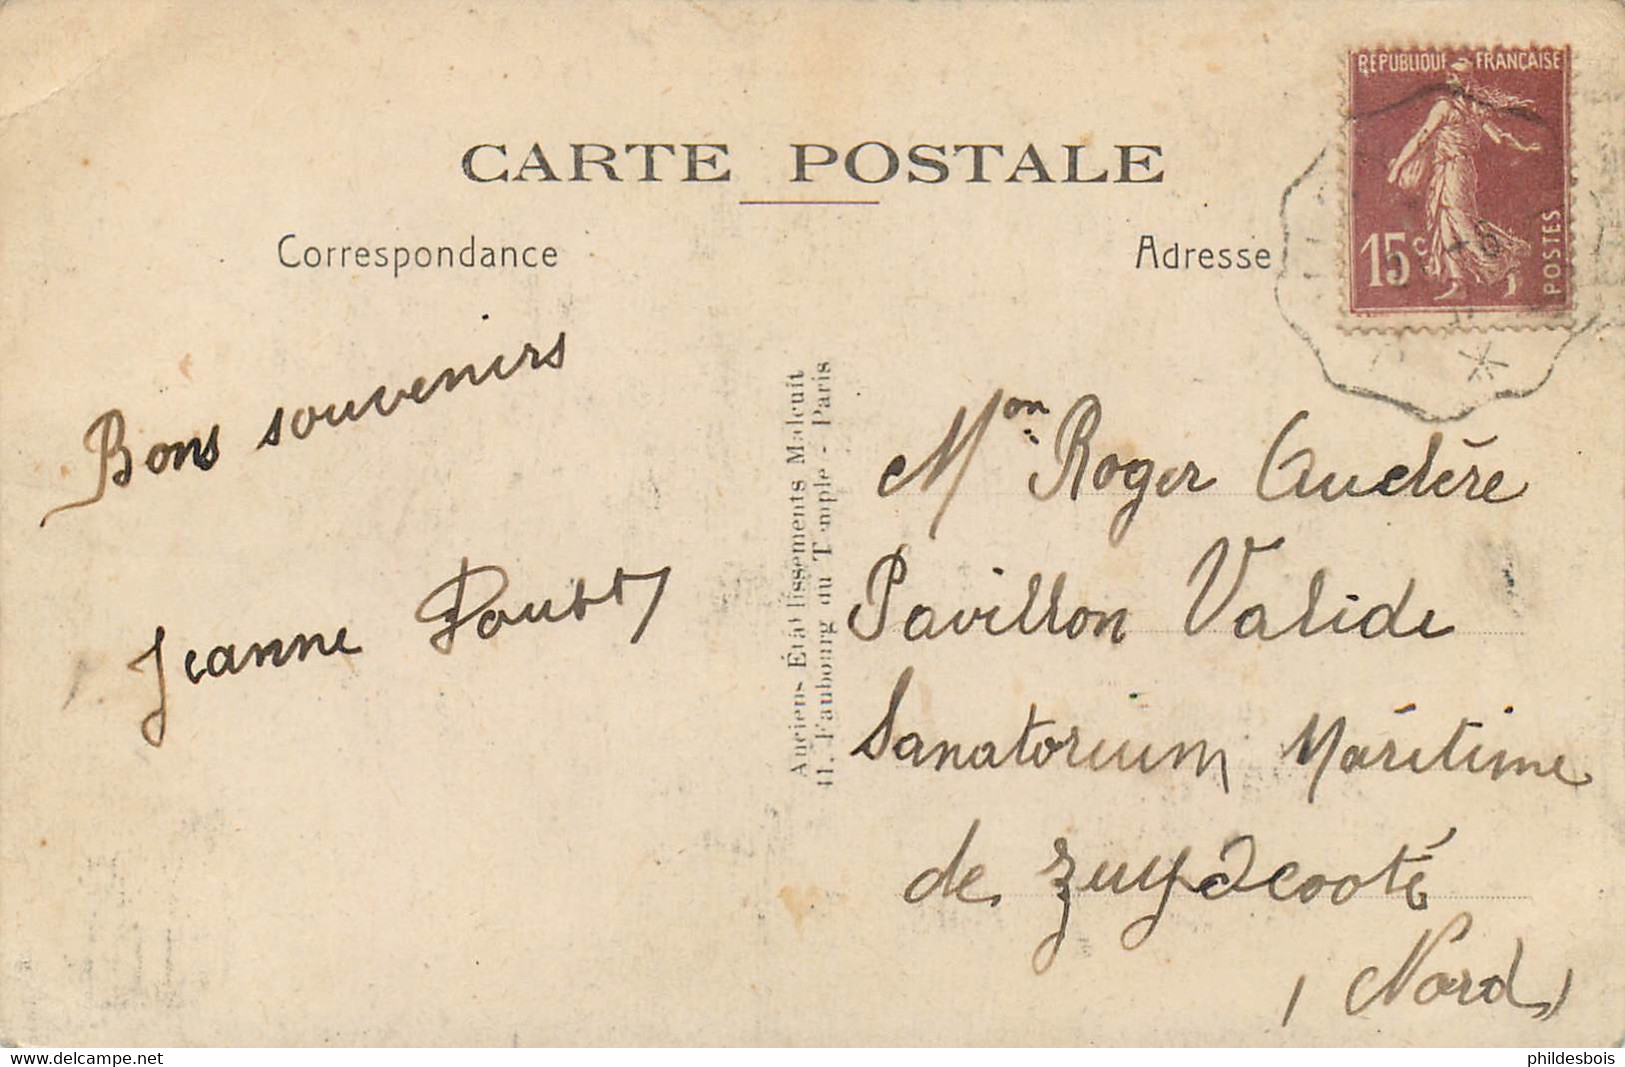 CARTE POSTALE
Correspondance
Adresse
REPUBLIQUE FRANÇAISE
15c
POSTES
Bons souvenirs
Jeanne
Anciens Établissements Malcuit
41, Faubourg du Temple - Paris
Mon Roger
Pavillon Valide
Sanatorium Maritime
de Zuydcoote
(Nord)
delcampe.net
phildesbois